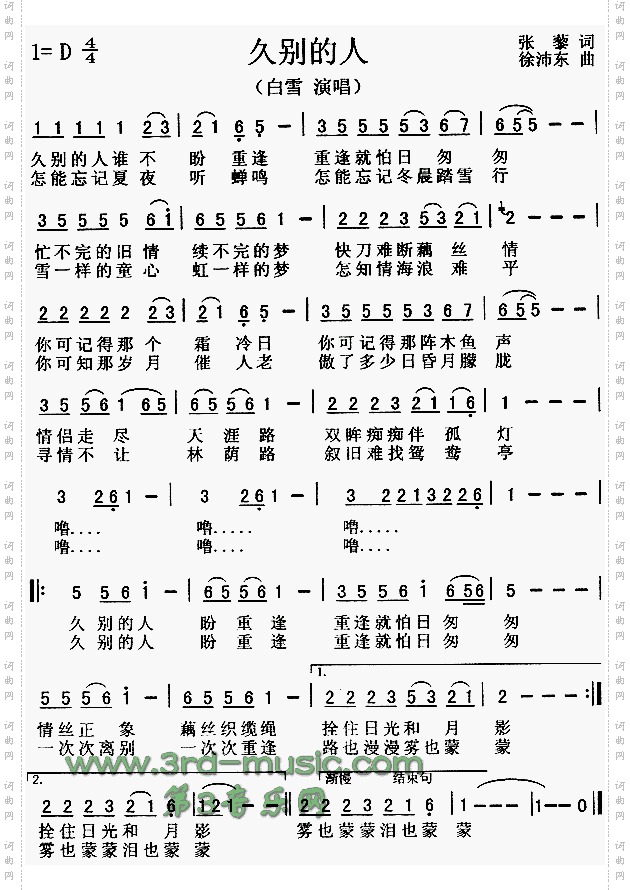 久别的人
1= D 4/4
张 藜 词
徐沛东 曲
（白雪 演唱）
1 1 1 1 1 2 3 | 2 1 6 5 · | 3 5 5 5 5 3 6 7 | 6 5 5 - - |
久别的人谁不 盼 重逢 重逢就怕日 匆 匆
怎能忘记夏夜 听 蝉鸣 怎能忘记冬晨踏雪 行
3 5 5 5 5 6 i | 6 5 5 6 1 - | 2 2 2 3 5 3 2 1 | 2 - - - |
忙不完的旧情 续不完的梦 快刀难断藕 丝 情
雪一样的童心 虹一样的梦 怎知情海浪 难 平
2 2 2 2 2 2 3 | 2 1 6 5 · | 3 5 5 5 5 3 6 7 | 6 5 5 - - |
你可记得那 个 霜 冷日 你可记得那阵木鱼 声
你可知那岁 月 催 人老 做了多少日昏月朦 胧
3 5 5 6 1 6 5 | 6 5 5 6 1 - | 2 2 2 3 2 1 1 6 | 1 - - - |
情侣走 尽 天 涯 路 双眸痴痴伴 孤 灯
寻情不 让 林 荫 路 叙旧难找鸳 鸯 亭
3 2 6 1 - | 3 2 6 1 - | 3 2 2 1 3 2 2 6 | 1 - - - |
噜.... 噜..... 噜.....
噜.... 噜..... 噜.....
‖: 5 5 6 i - | 6 5 5 6 1 - | 3 5 5 5 6 i 6 5 6 | 5 - - - |
久 别 的 人 盼 重 逢 重逢就怕日 匆 匆
久 别 的 人 盼 重 逢 重逢就怕日 匆 匆
1.
5 5 5 6 i - | 6 5 5 6 1 - | 2 2 2 3 5 3 2 1 | 2 - - - :‖
情 丝 正 象 藕 丝 织 缆 绳 拴 住 日 光 和 月 影
一次次离别 一次次重逢 路也漫漫雾也蒙 蒙
www.3rd-music.com
第3音乐网
2. 渐慢 结束句
2 2 2 3 2 1 6 | 1 2 1 - - :‖ 2 2 2 3 2 2 1 6 | 1 - - - | 1 - - 0 ‖
拴住日光和 月 影 雾也蒙蒙泪也蒙 蒙
雾也蒙蒙泪也蒙 蒙
词曲网